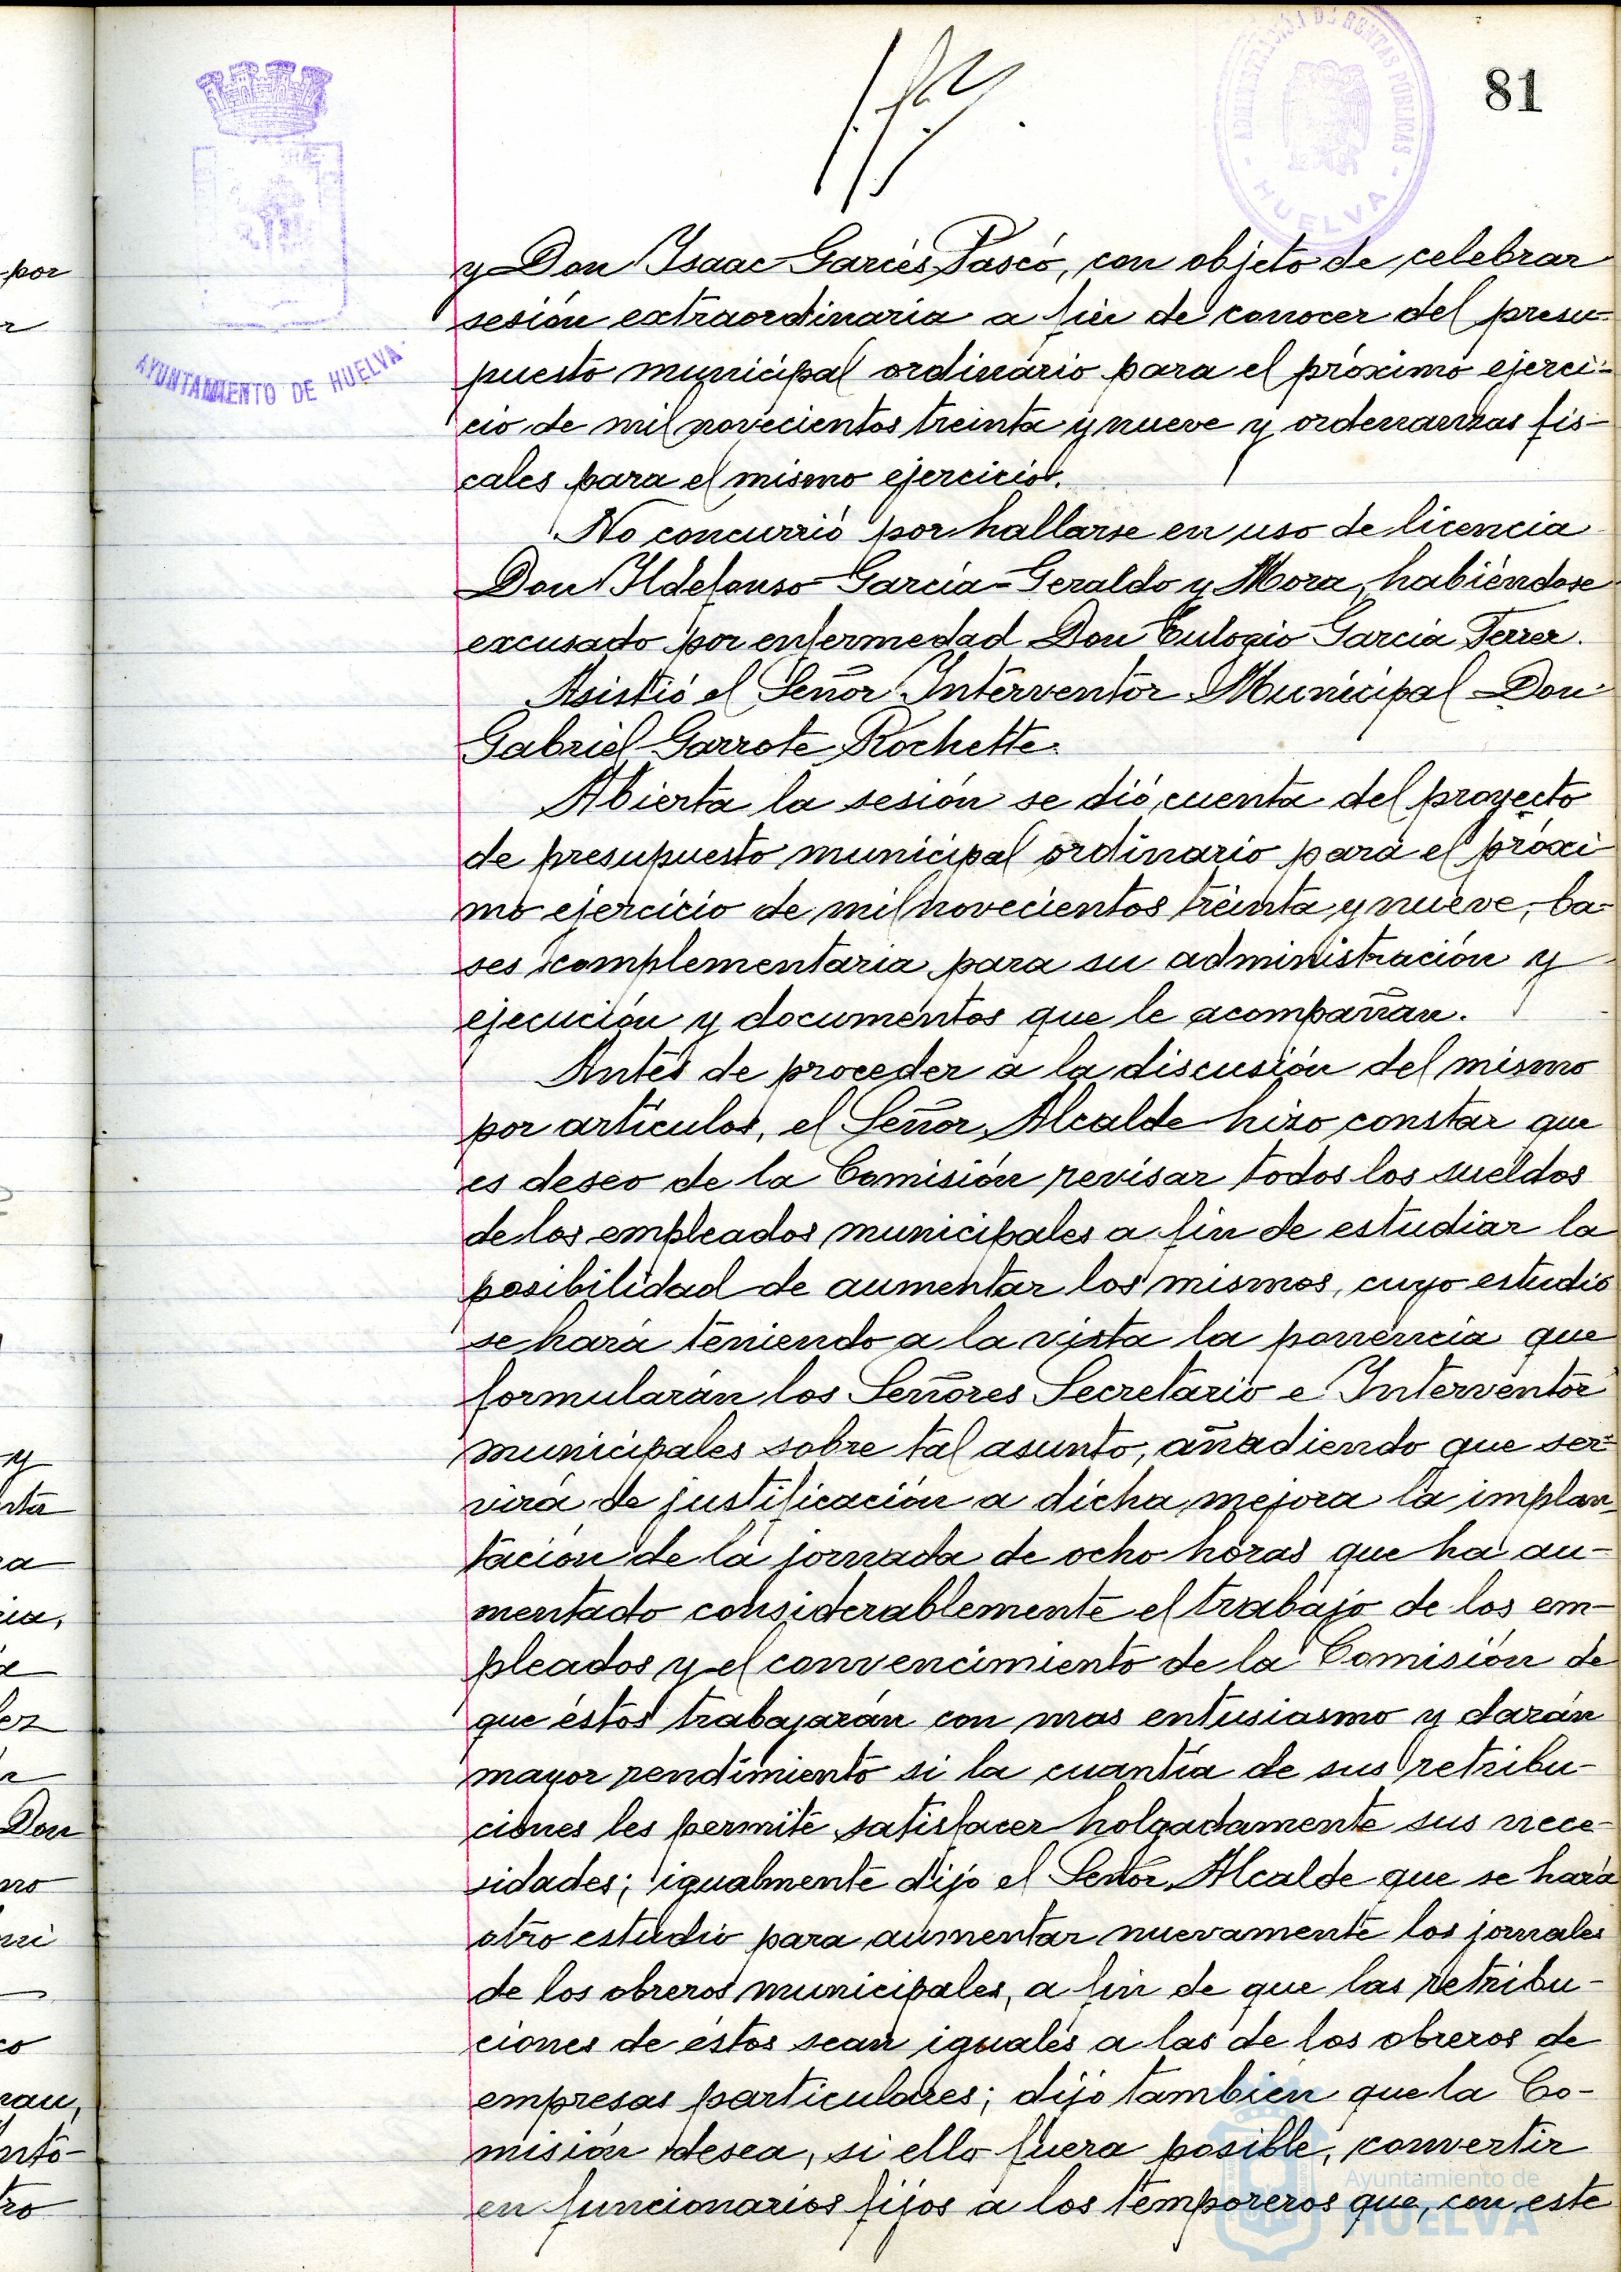 81
ADMINISTRACIÓN DE RENTAS PUBLICAS
- HUELVA -
AYUNTAMIENTO DE HUELVA
y Don Isaac Garcés Pascó, con objeto de celebrar
sesión extraordinaria a fin de conocer del presu-
puesto municipal ordinario para el próximo ejerci-
cio de mil novecientos treinta y nueve y ordenanzas fis-
cales para el mismo ejercicio.
No concurrió por hallarse en uso de licencia
Don Ildefonso García-Geraldo y Mora, habiéndose
excusado por enfermedad Don Eulogio García Ferrer.
Asistió el Señor Interventor Municipal Don
Gabriel Garrote Rochette.
Abierta la sesión se dió cuenta del proyecto
de presupuesto municipal ordinario para el próxi-
mo ejercicio de mil novecientos treinta y nueve, ba-
ses complementaria para su administración y
ejecución y documentos que le acompañan.
Antes de proceder a la discusión del mismo
por artículos, el Señor Alcalde hizo constar que
es deseo de la Comisión revisar todos los sueldos
de los empleados municipales a fin de estudiar la
posibilidad de aumentar los mismos, cuyo estudio
se hará teniendo a la vista la ponencia que
formularán los Señores Secretario e Interventor
municipales sobre tal asunto, añadiendo que ser-
virá de justificación a dicha mejora la implan-
tación de la jornada de ocho horas que ha au-
mentado considerablemente el trabajo de los em-
pleados y el convencimiento de la Comisión de
que éstos trabajarán con mas entusiasmo y darán
mayor rendimiento si la cuantía de sus retribu-
ciones les permite satisfacer holgadamente sus nece-
sidades; igualmente dijo el Señor Alcalde que se hará
otro estudio para aumentar nuevamente los jornales
de los obreros municipales, a fin de que las retribu-
ciones de éstos sean iguales a las de los obreros de
empresas particulares; dijo también que la Co-
misión desea, si ello fuera posible, convertir
en funcionarios fijos a los temporeros que, con este
Ayuntamiento de
HUELVA